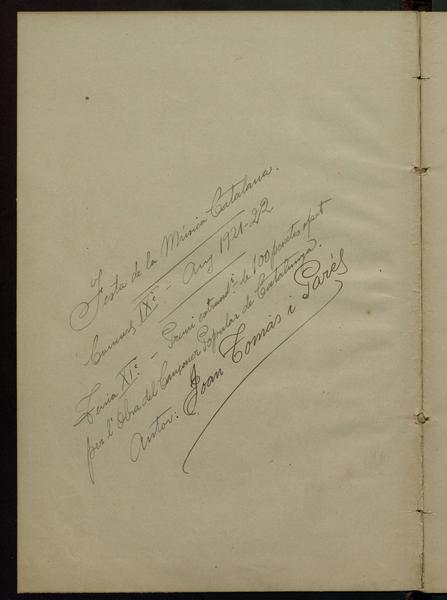 Festa de la Música Catalana.
Concurs IXè - Any 1921-22
Tema XIè. - Premi extraordi. de 100 pessetes ofert
per l'Obra del Cançoner Popular de Catalunya.
Autor: Joan Tomàs i Parés